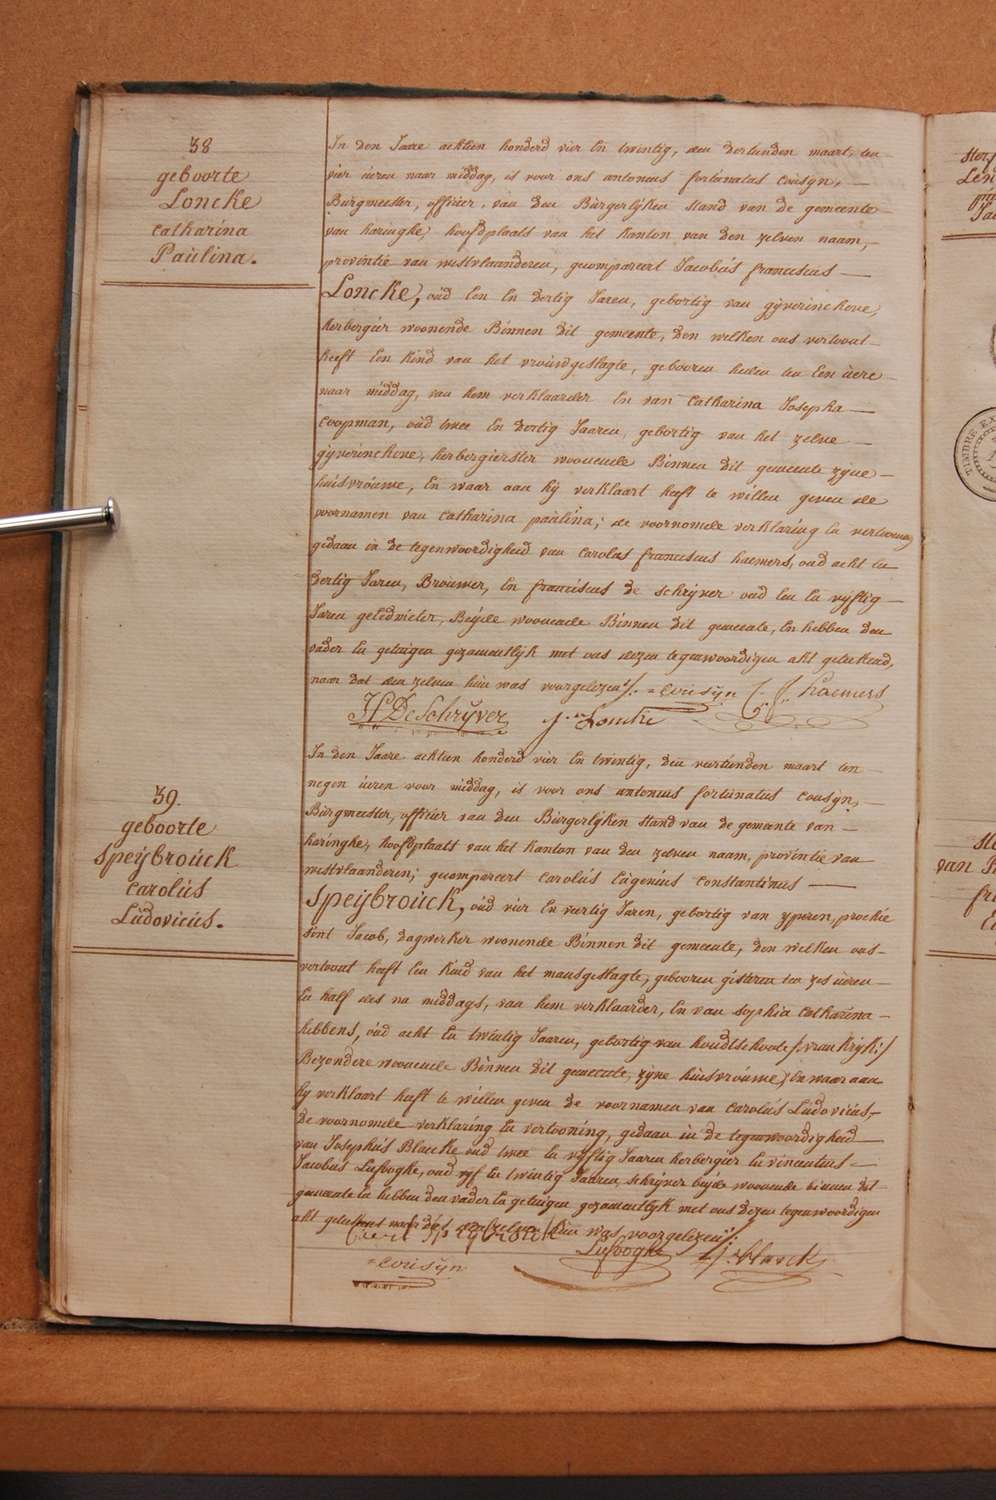 38
geboorte
Loncke
Catharina
Paulina.
In den Jaare achtien honderd vier En twintig, den dertienden maart, ten
vier üeren naar middag, is voor ons antonius fortunatus Cousijn, —
Bürgmeester, officier, van den Bürgerlijken stand van de gemeente
van haringhe, hoofdplaats van het kanton van den zelven naam,
provintie van westvlaanderen, gecompareert Jacobüs franciscus —
Loncke, oüd Een En dertig Jaren, gebortig van gijverinchove,
herbergier woonende Binnen dit gemeente, den welken ons vertoont
heeft Een kind van het vroüwgeslagte, gebooren heden ten Een üere
naar middag, van hem verklaarder En van Catharina Josepha —
Coopman, oüd twee En dertig Jaaren, gebortig van het zelve —
gijverinchove, herbergierster woonende Binnen dit gemeente zijne
huisvroüwe, En waar aan hij verklaart heeft te willen geven de
voornamen van Catharina paülina; de voornomde verklaring En vertooning
gedaan in de tegenwoordigheid van Carolus franciscus haemers, oud acht En
dertig Jaren, Broüwer, En franciscus de schrijver oud Een En vijftig
Jaren geledwieter, Beijde woonende Binnen dit gemeente, En hebben den
vader En getuigen gezamentlijk met ons dezen tegenwoordigen akt geteekend,
naar dat den zelven hün was voorgelezen /. = Cousijn C. f. haemers
JF De Schrijver J. Loncke
39.
geboorte
Speijbroück
Carolüs
Lüdovicüs.
In den Jaare achtien honderd vier En twintig, den veertienden maart ten
negen üeren voor middag, is voor ons antonius fortunatus Cousijn, —
Bürgmeester, officier van den Bürgerlijken stand van de gemeente van
haringhe, hoofdplaats van het kanton van den zelven naam, provintie van
westvlaanderen; gecompareert Carolüs Eügenius Constantinus —
Speijbroück, oüd vier En veertig Jaren, gebortig van ijperen, prochie
sint Jacob, dagwerker woonende Binnen dit gemeente, den welken ons
vertoont heeft Een kind van het mansgeslagte, gebooren gisteren ten zes üeren
En half des na middags, van hem verklaarder, En van sophia Catharina
hebbens, oüd acht En twintig Jaaren, gebortig van houdtschoote /: vrankrijk :/
Bezondere woonende Binnen dit gemeente, zijne hüisvroüwe, En waar aan
hij verklaart heeft te willen geven de voornamen van Carolüs Lüdovicüs,
de voornomde verklaring En vertooning, gedaan in de tegenwoordigheid
van Josephüs Blaecke oud twee En vijftig Jaaren herbergier En vincentius
Jacobüs Lefooghe, oud vijf En twintig Jaaren, schrijver beijde woonende binnen dit
gemeente En hebben den vader En getuigen gezamentlijk met ons dezen tegenwoordigen
akt geteekent naar dat den zelven hün was voorgelezen /.
Lefooghe
= Cousijn